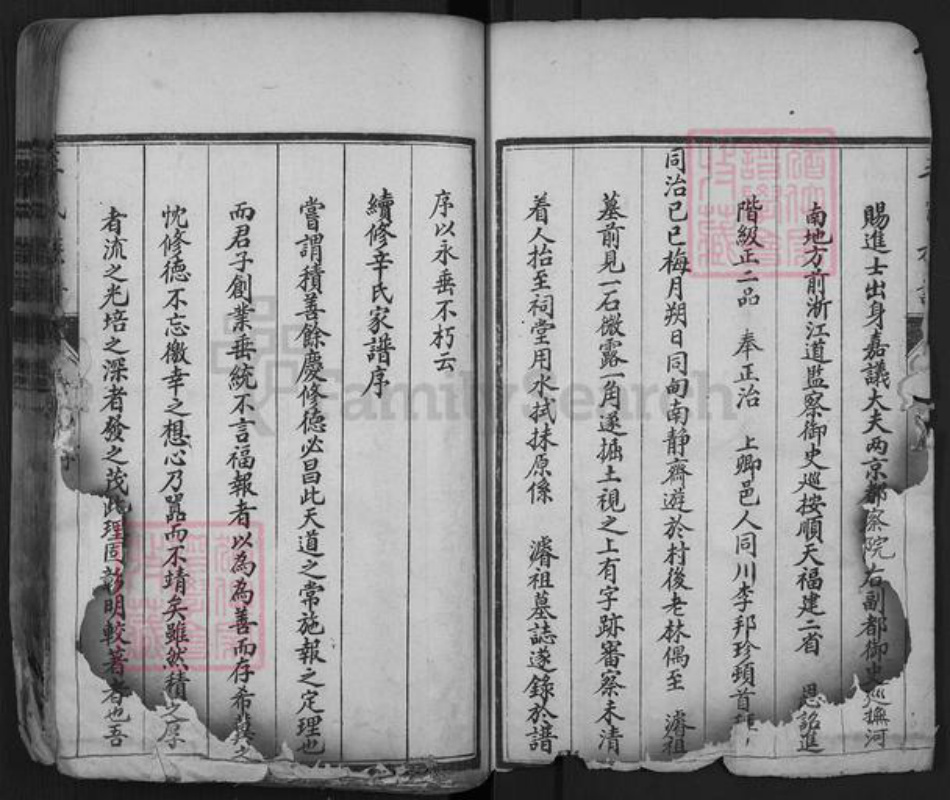 賜進士出身嘉議大夫两京都察院右副都御史巡撫河
南地方前淅江道監察御史巡按順天福建二省　恩詔進
階級正二品　奉正治　上卿邑人同川李邦珍頓首
同治己巳梅月朔日同甸南靜齋遊於村後老林偶至　濬祖
墓前見一石微露一角遂掘土視之上有字跡審察未清
着人抬至祠堂用水拭抹原係　濬祖墓誌遂錄於譜
序以永垂不朽云
續修辛氏家譜序
嘗謂積善餘慶修德必昌此天道之常施報之定理也
而君子創業垂統不言福報者以為為善而存希冀之
忱修德不忘徼幸之想心乃囂而不靖矣雖然積之厚
者流之光培之深者發之茂此理固彰明較著者也吾
FamilySearch